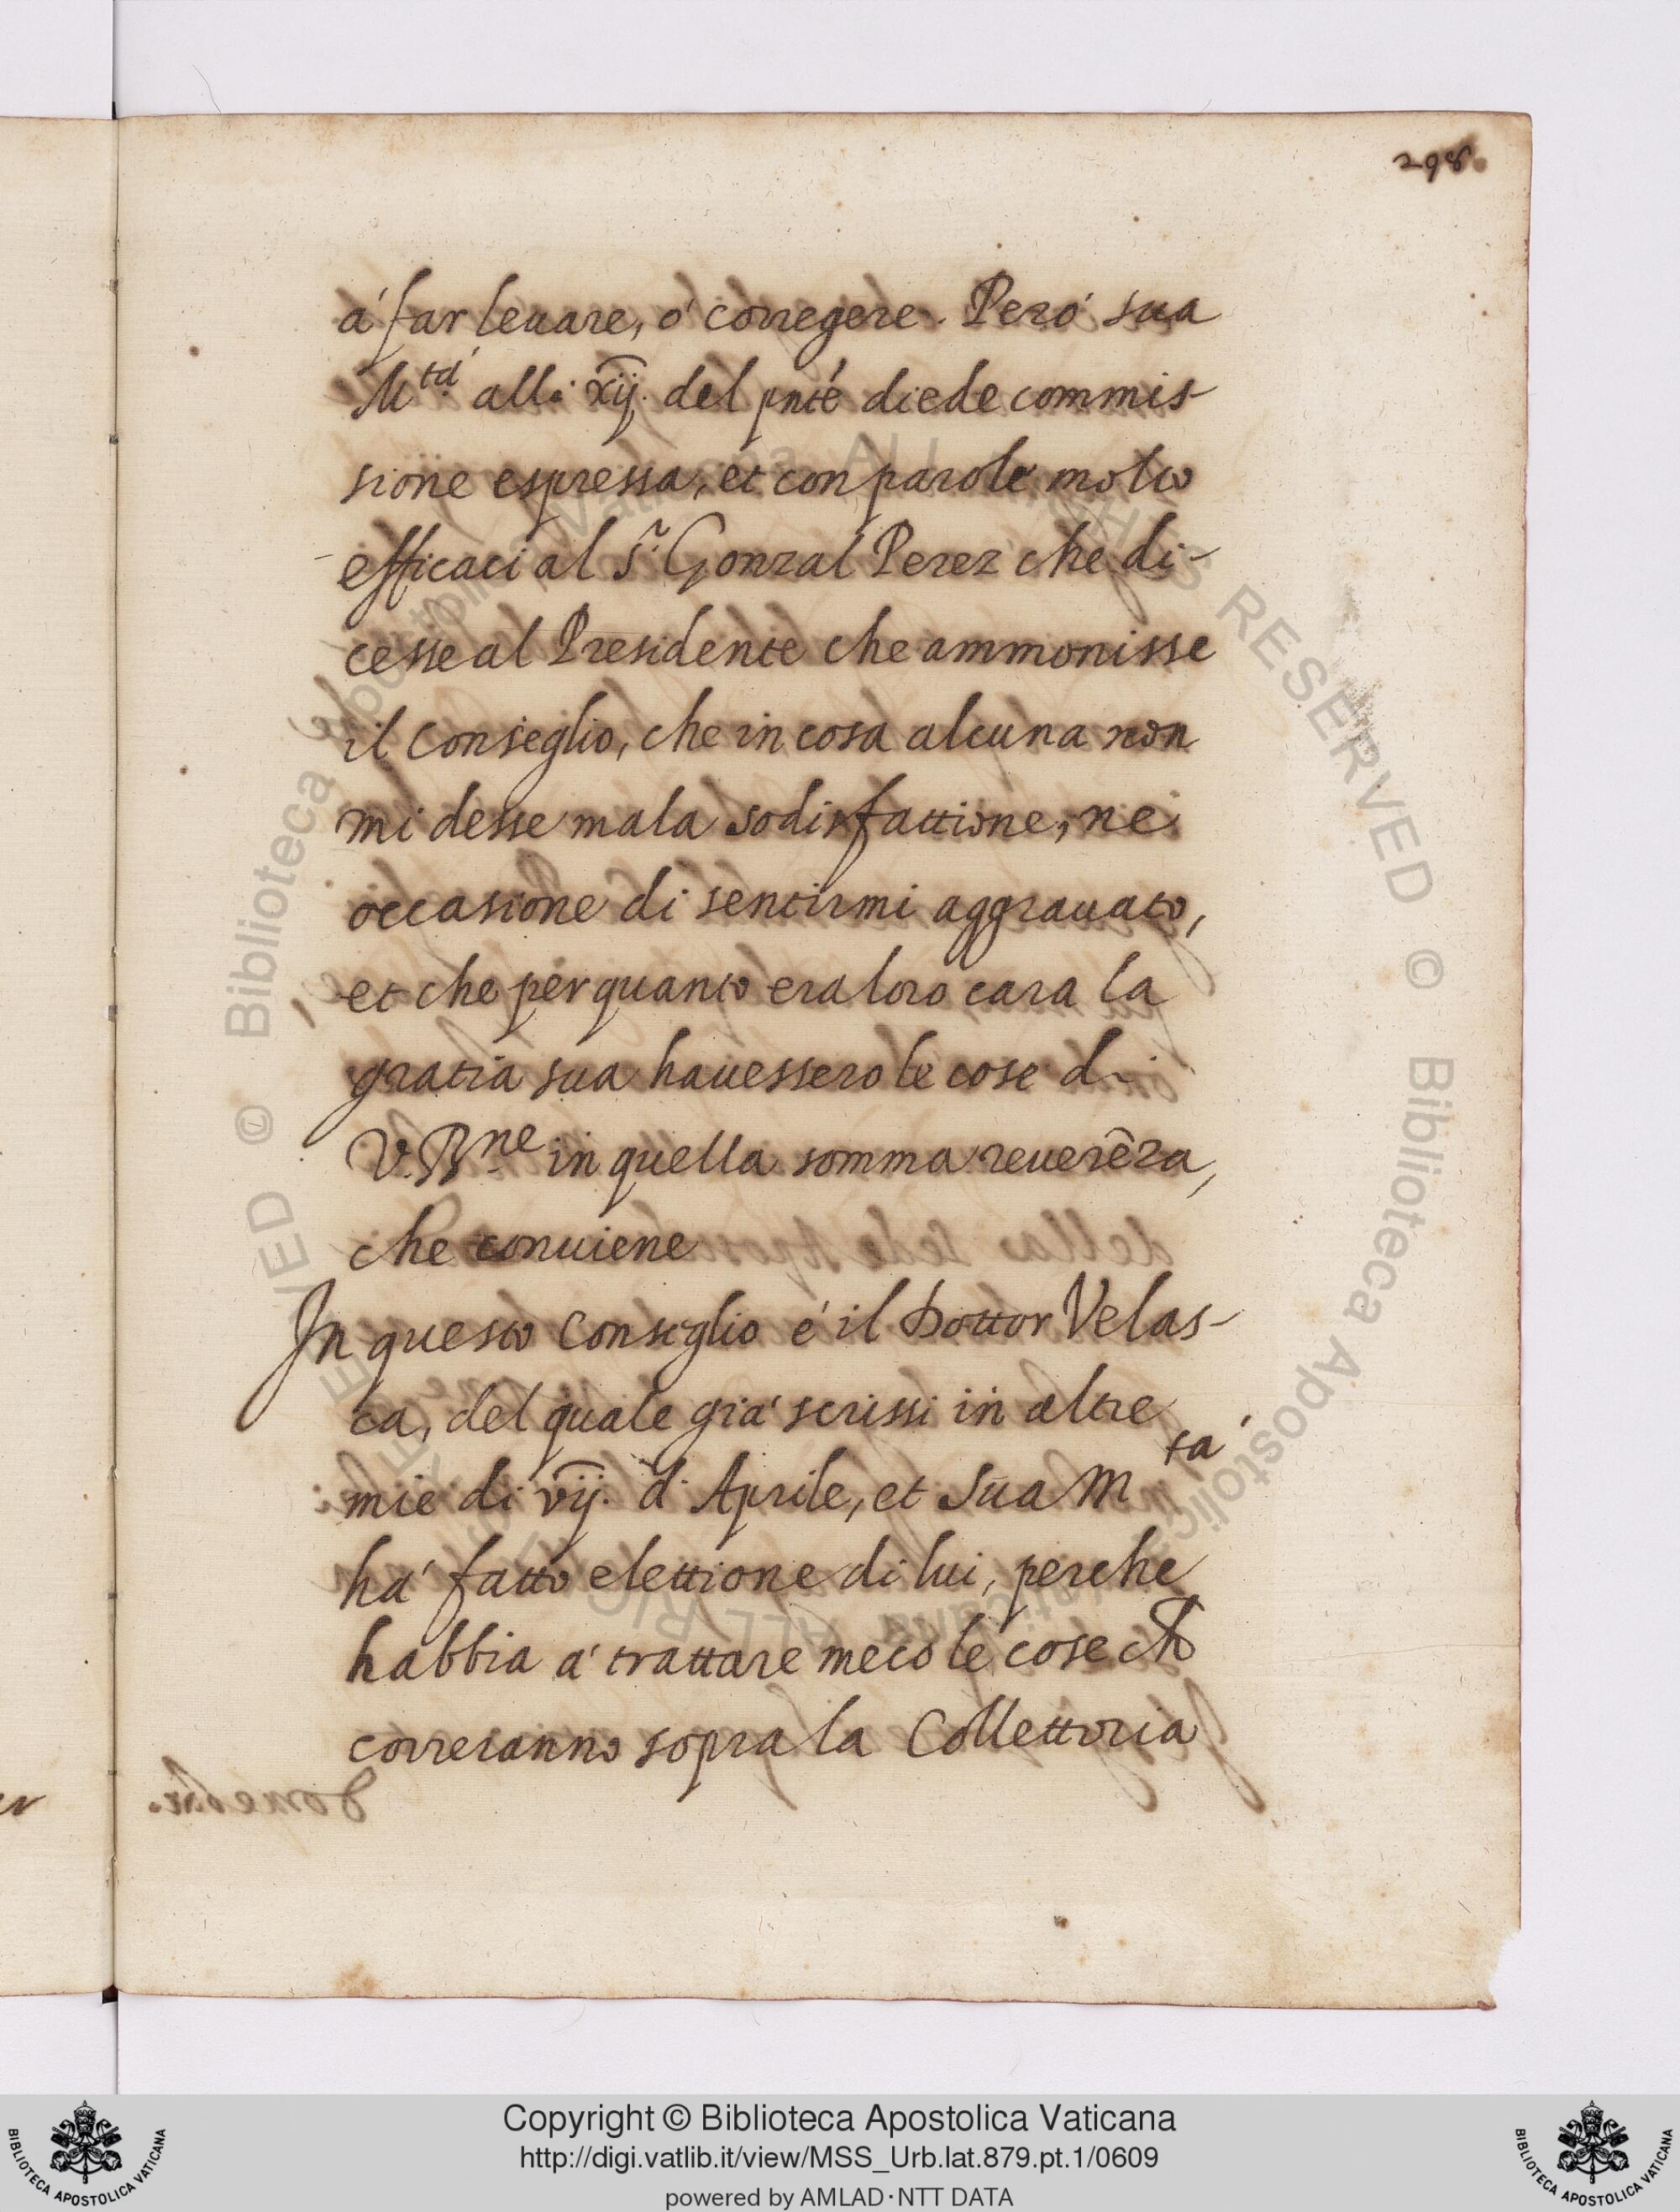 298.
á far leuare, ó corregere. Però sua
M.tá alli xij. del pnté diede commis-
sione espressa, et con parole molto
efficaci al s.r Gonzal Perez che di-
cesse al Presidente che ammonisse
il Conseglio, che in cosa alcuna non
mi desse mala sodisfattione, ne
occasione di sentirmi aggrauato,
et che per quanto era loro cara la
gratia sua hauessero le cose di
V. B.ne in quella somma reuerēza,
che conuiene
In questo Conseglio é il Dottor Velas-
ca, del quale giá scrissi in altre
mie di vij. d' Aprile, et Sua M.tá
há fatto elettione di lui, perche
habbia á trattare meco le cose ch
correranno sopra la Collettoria
Copyright © Biblioteca Apostolica Vaticana
http://digi.vatlib.it/view/MSS_Urb.lat.879.pt.1/0609
powered by AMLAD·NTT DATA
BIBLIOTECA APOSTOLICA VATICANA
BIBLIOTECA APOSTOLICA VATICANA
© Biblioteca Apostolica Vaticana ALL RIGHTS RESERVED
© Biblioteca Apostolica Vaticana ALL RIGHTS RESERVED